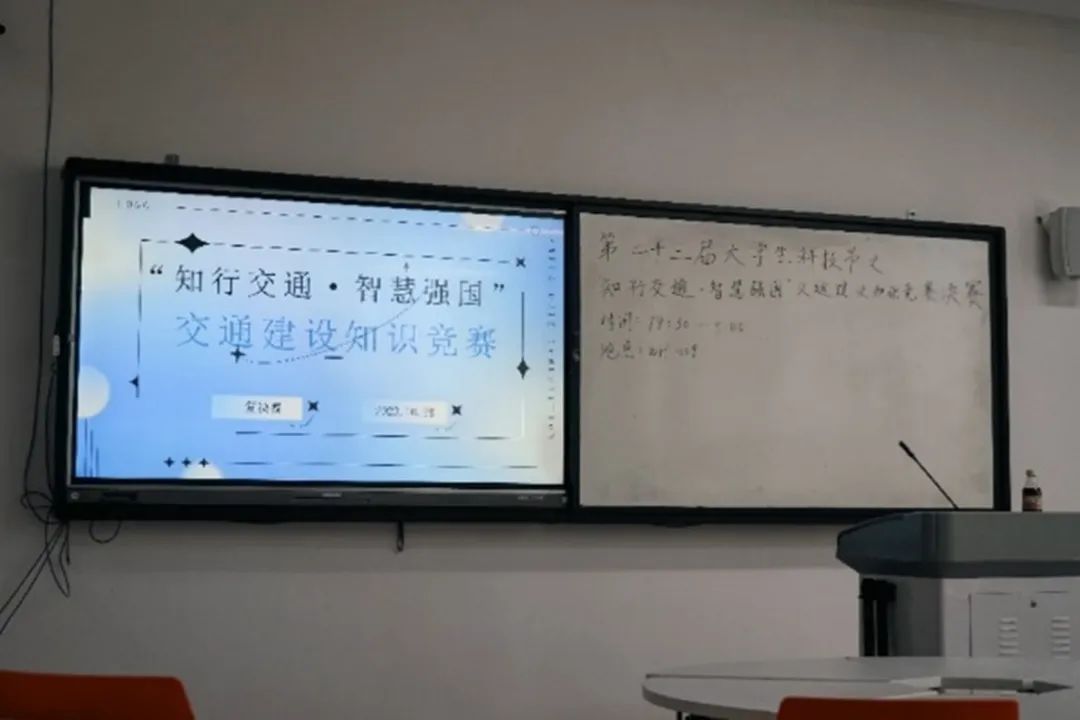 LOGO
“知行交通·智慧强国”
交通建设知识竞赛
第二十二届大学生科技节之
知行交通·智慧强国”交通建设知识竞赛决赛
时间：19:30
地点：